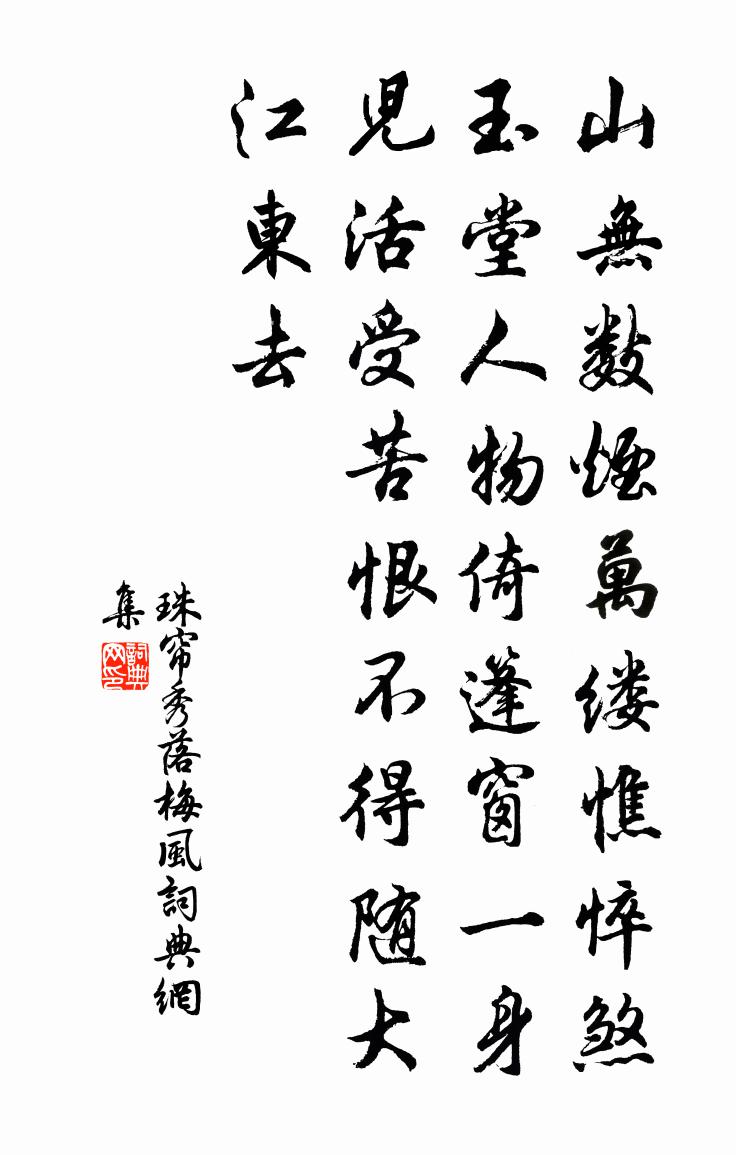 山無數煙萬縷憔悴煞
玉堂人物倚篷窗一身
兒活受苦恨不得随大
江東去
珠帘秀落梅風詞典網
集
詞典网印